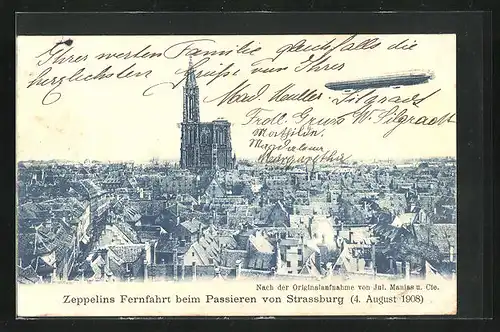 Ihrer werten Familie gleichfalls die
herzlichsten Grüsse von Ihrer
Mad.
Frdl. Gruss W. Silgradt
Mathilde.
Magdalena
Margaretha
Nach der Originalaufnahme von Jul. Manias u. Cie.
Zeppelins Fernfahrt beim Passieren von Strassburg (4. August 1908)